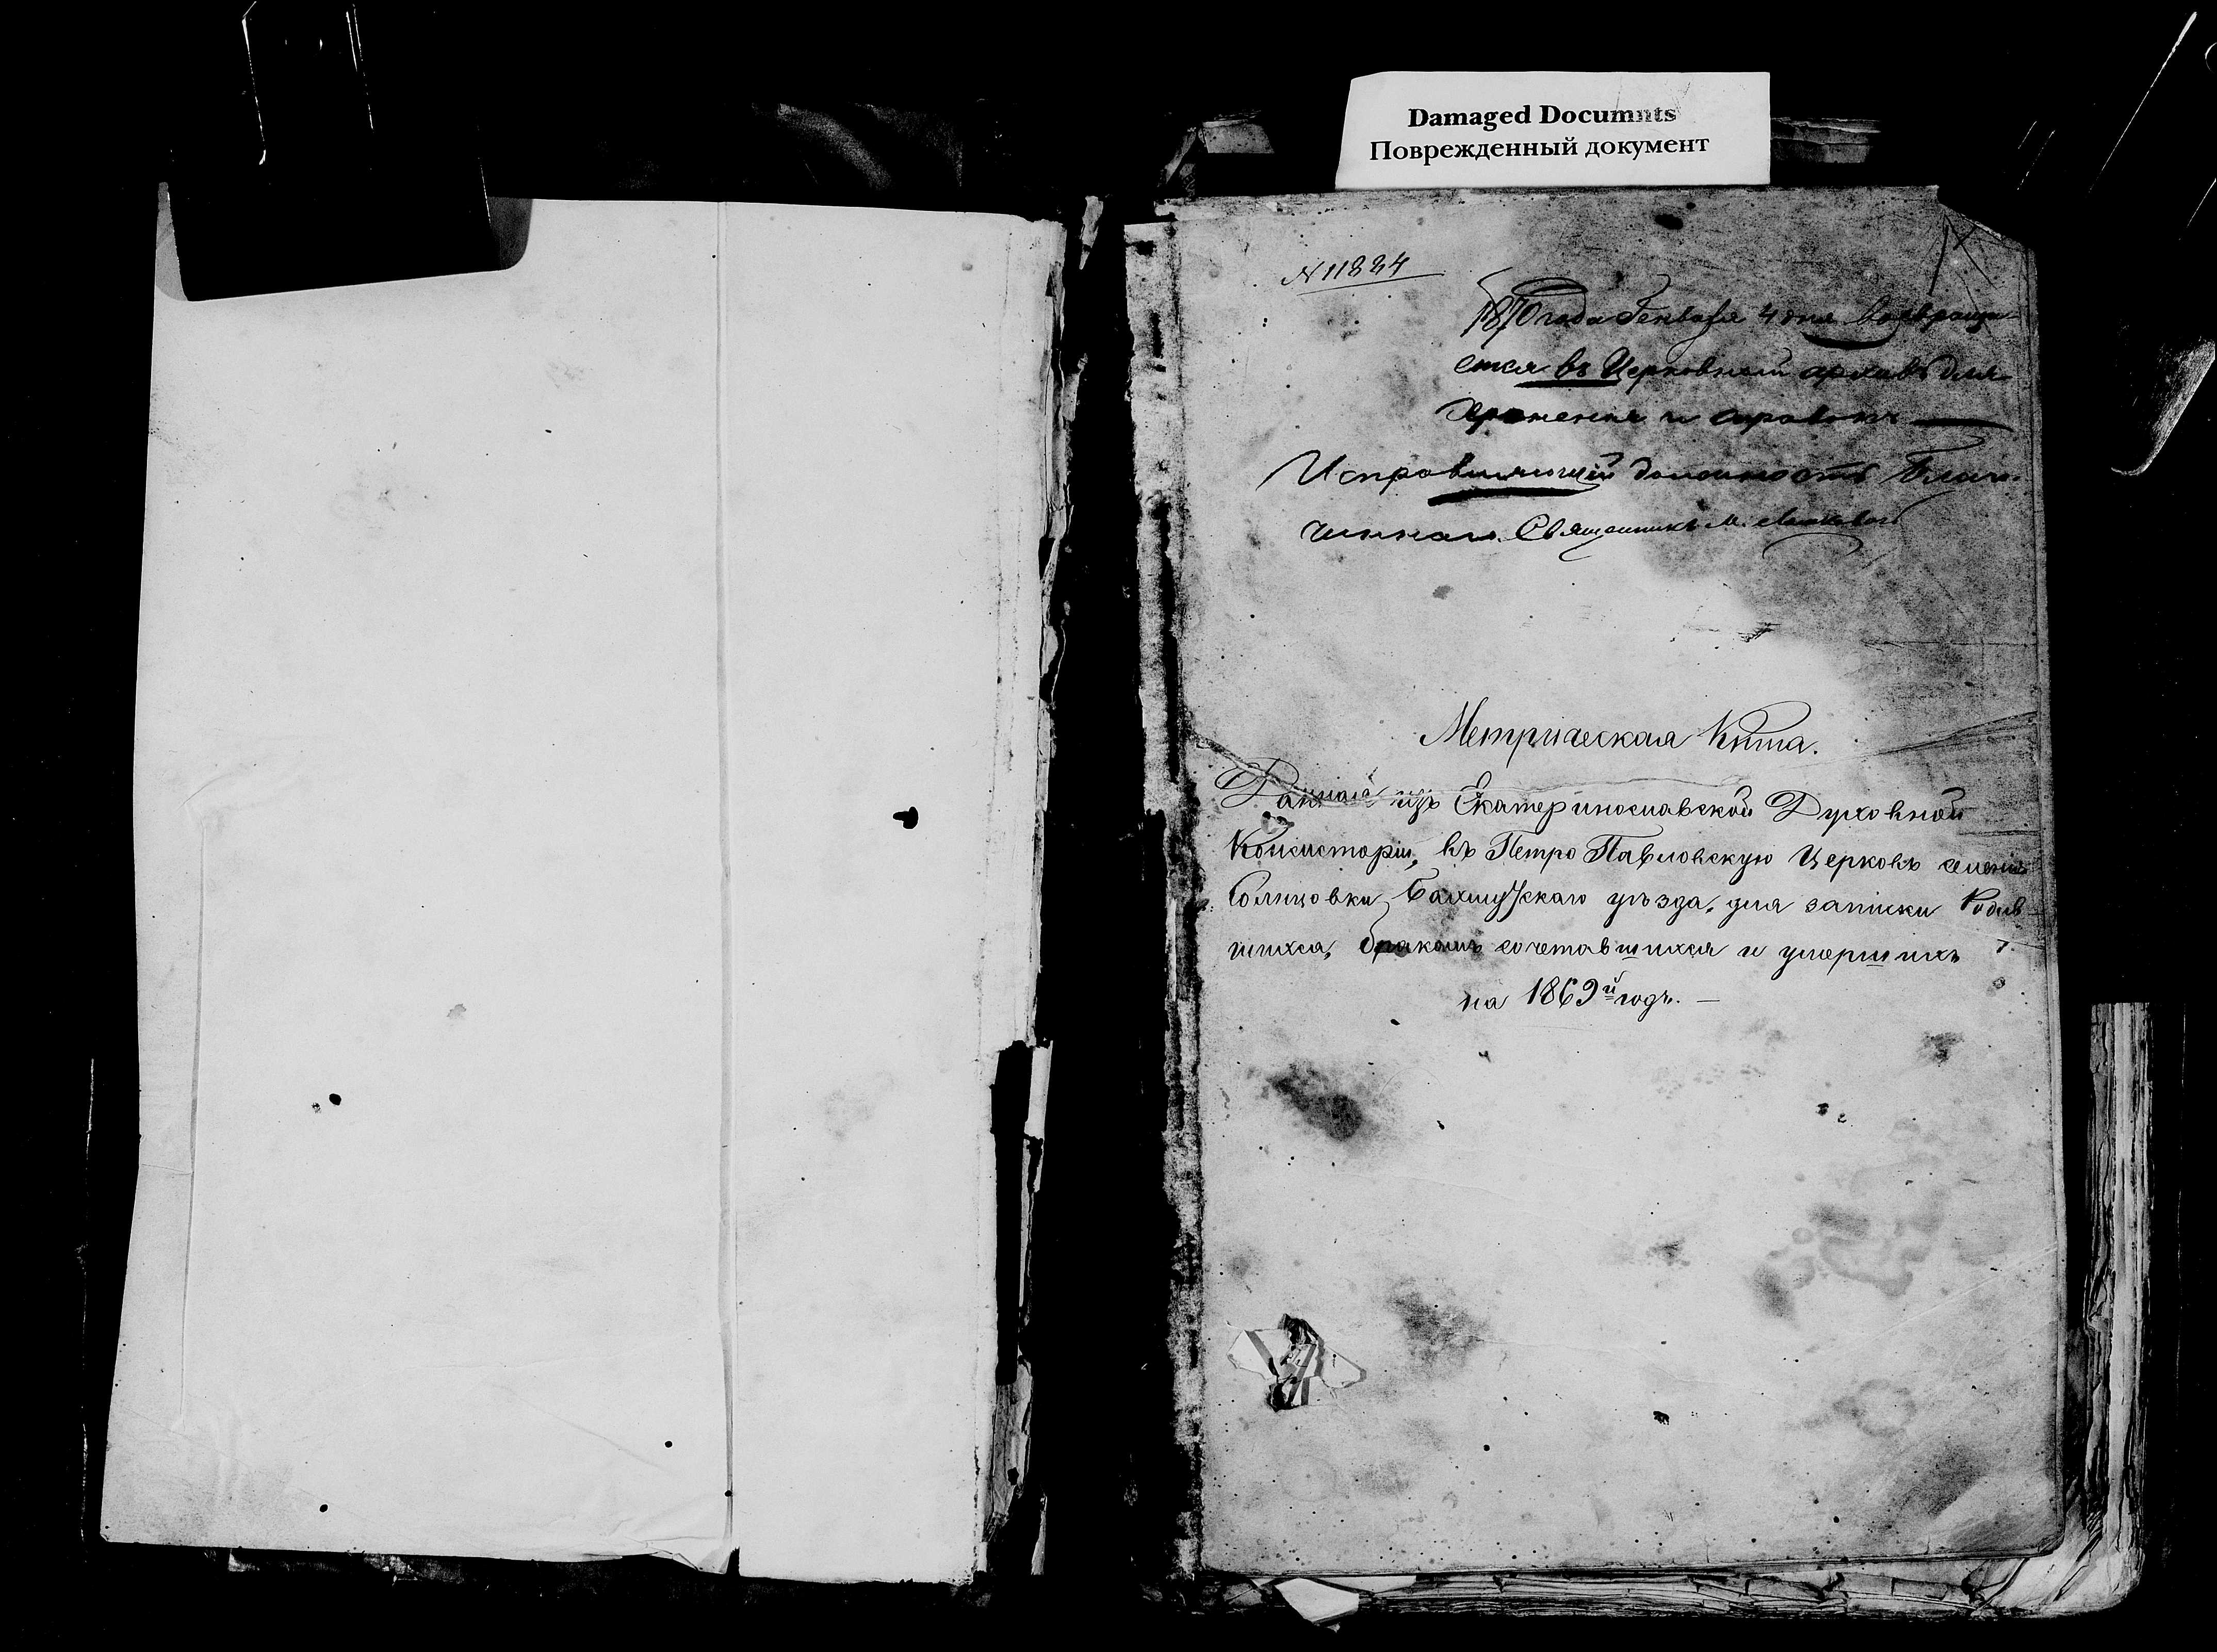 Damaged Documnts
Поврежденный документ
N 11884
1870 года Генваря 4 дня возвраща-
ется въ Церковный архивъ для
храненія и справокъ
Исправляющій должность Благо-
чиннаго Священникъ М.
Метрическая Книга.
Данная изъ Екатеринославской Духовной
Консисторіи, въ Петро Павловскую Церковь селенія
Бахмутскаго уѣзда, для записки Родив-
шихся, бракомъ сочетавшихся и умершихъ
на 1869й годъ. —